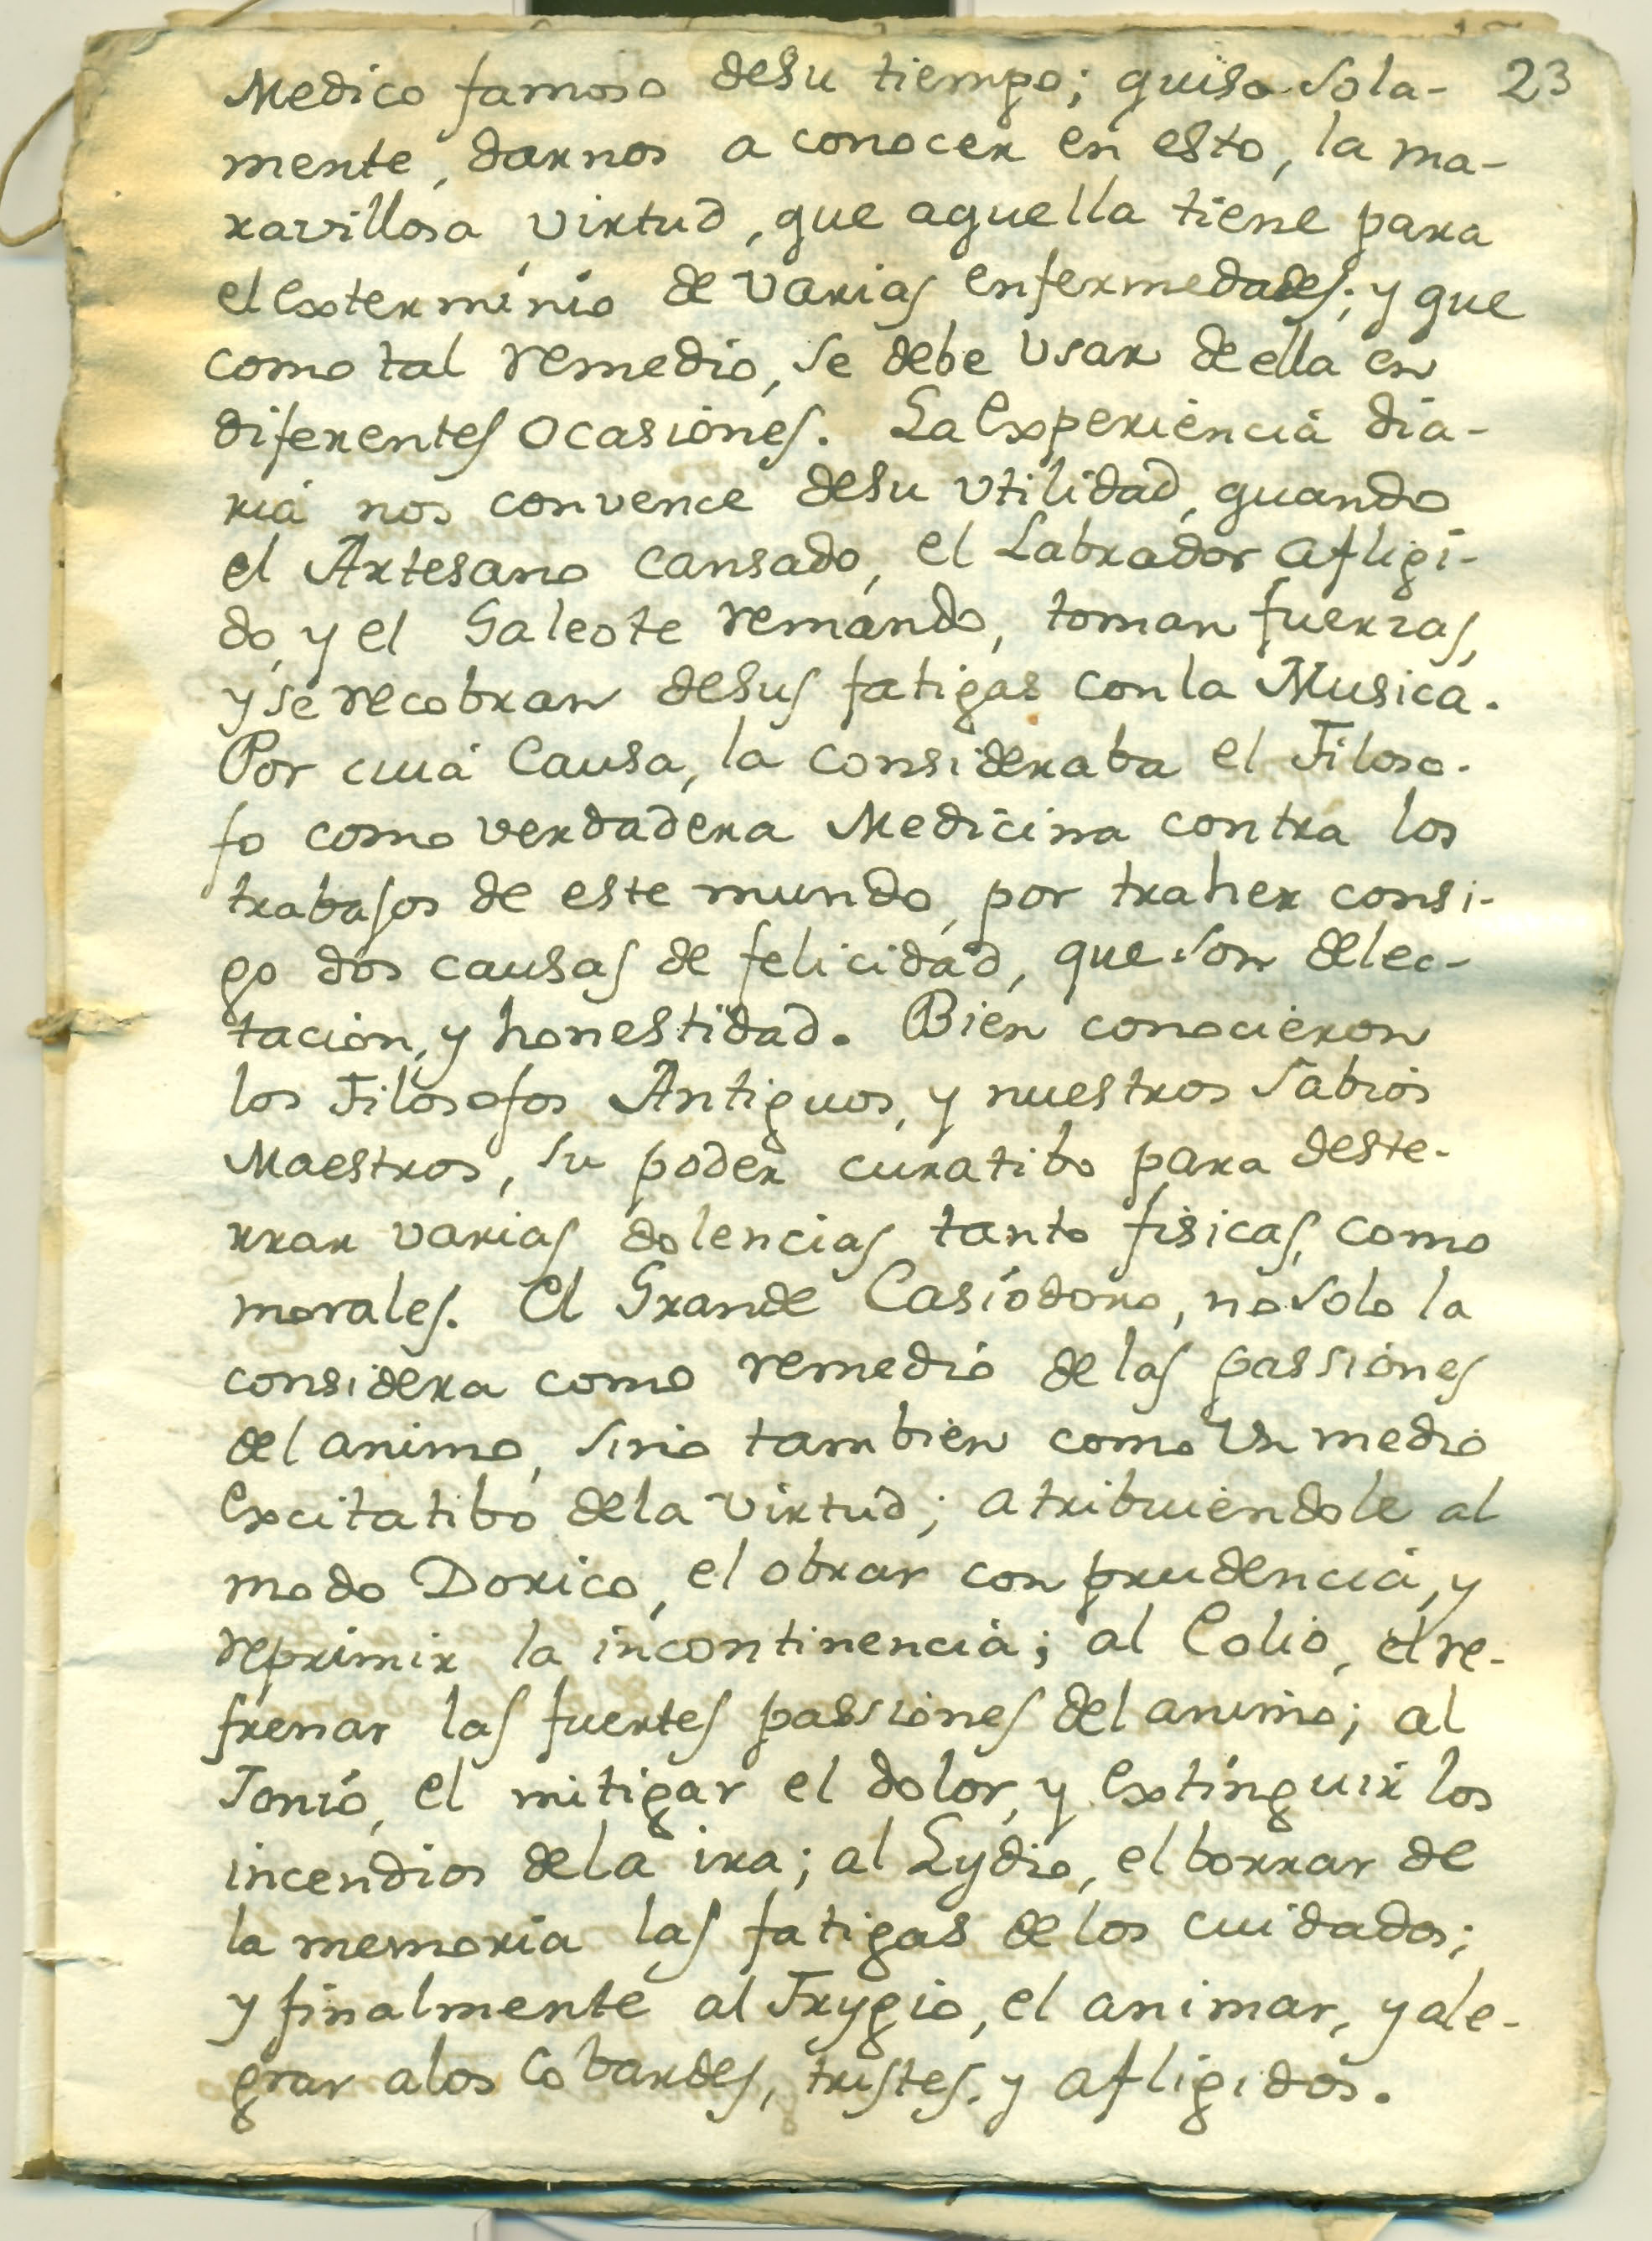 Medico famoso desu tiempo; quiso sola- 23
mente, darnos a conocer en esto, la ma-
ravillosa virtud, que aquella tiene para
el exterminio de varias enfermedades; y que
como tal remedio, se debe usar de ella en
diferentes ocasiones. La experiencia dia-
ria nos convence desu utilidad, quando
el Artesano cansado, el Labrador afligi-
do, y el Galeote remando, toman fuerzas,
y se recobran desus fatigas con la Musica.
Por cuia causa, la consideraba el Filoso-
fo como verdadera Medicina contra los
trabajos de este mundo, por traher consi-
go dos causas de felicidad, que son delec-
tacion, y honestidad. Bien conocieron
los Filosofos Antiguos, y nuestros Sabios
Maestros, su poder curatibo para deste-
rrar varias dolencias tanto fisicas, como
morales. El Grande Casiódoro, no solo la
considera como remedio de las passiones
del animo, sino tambien como un medio
excitatibo dela virtud; atribuiendole al
modo Dorico, el obrar con prudencia, y
reprimir la incontinencia; al Eolio, el re-
frenar las fuertes passiones del animo; al
Jonio, el mitigar el dolor, y extinguir los
incendios dela ira; al Lydio, el borrar de
la memoria las fatigas de los cuidados;
y finalmente al Frygio, el animar, y ale-
grar alos cobardes, tristes, y afligidos.